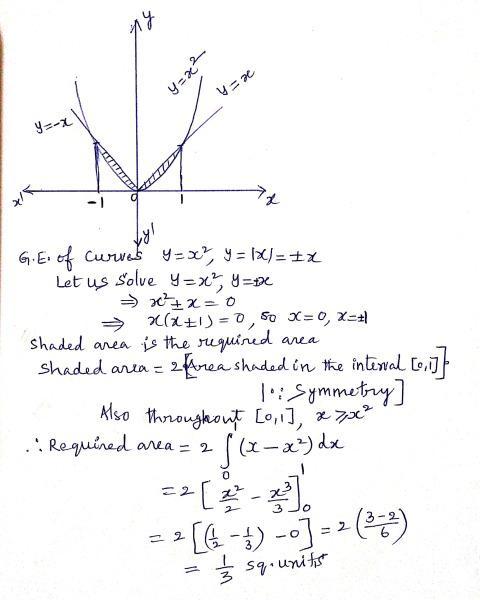 y
y=x²
y=x
y=-x
x'
-1
0
1
x
y'
G.E. of curves y=x², y=|x|=±x
Let us solve y=x², y=±x
⇒ x²±x=0
⇒ x(x±1)=0, so x=0, x=±1
Shaded area is the required area
Shaded area = 2[Area shaded in the interval [0,1]].
|∵ Symmetry]
Also throughout [0,1], x⩾x²
∴ Required area = 2 ∫₀¹ (x-x²) dx
= 2 [x²/2 - x³/3]₀¹
= 2 [(1/2 - 1/3) - 0] = 2 ((3-2)/6)
= 1/3 sq. units.